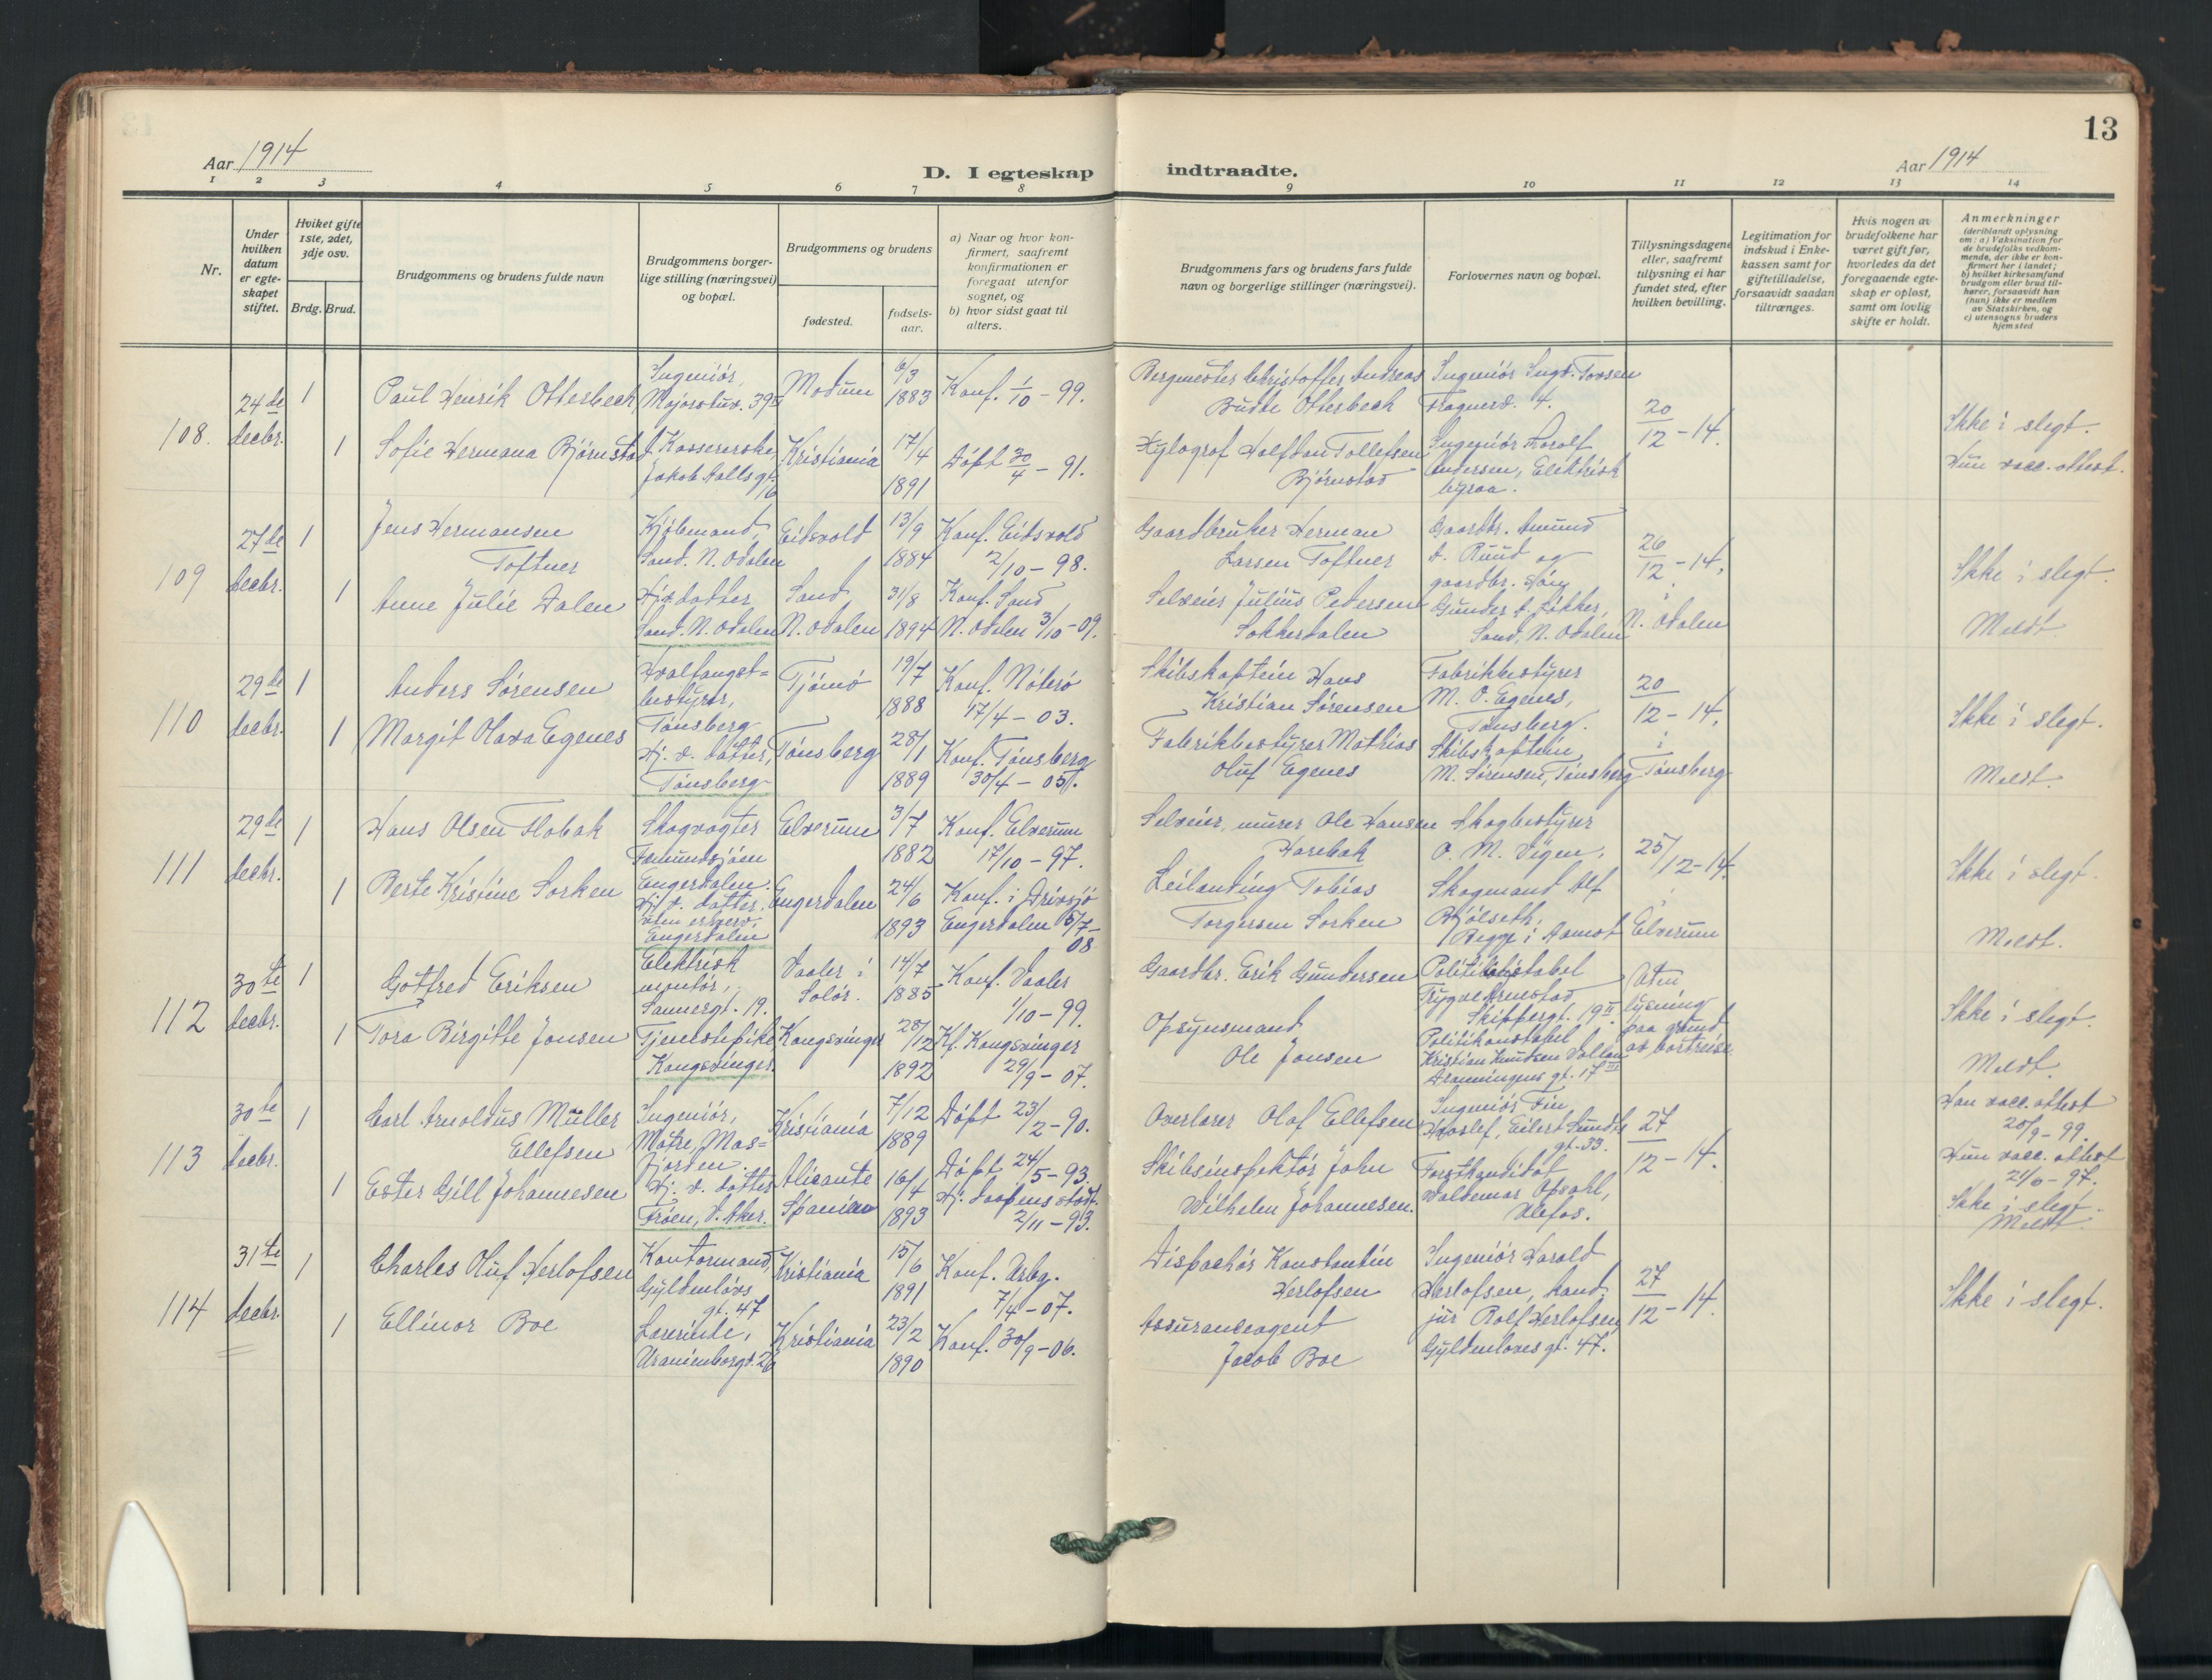 13
Aar 1914
D. I egteskap indtraadte.
Aar 1914
1 2 3 4 5 6 7 8 9 10 11 12 13 14
Nr.
Under hvilken datum er egteskapet stiftet.
Hvilket gifte 1ste, 2det, 3dje osv.
Brdg. Brud.
Brudgommens og brudens fulde navn
Brudgommens borgerlige stilling (næringsvei) og bopæl.
Brudgommens og brudens
fødested.
fødselsaar.
a) Naar og hvor konfirmert, saafremt konfirmationen er foregaat utenfor sognet, og
b) hvor sidst gaat til alters.
Brudgommens fars og brudens fars fulde navn og borgerlige stillinger (næringsvei).
Forlovernes navn og bopæl.
Tillysningsdagene eller, saafremt tillysning ei har fundet sted, efter hvilken bevilling.
Legitimation for indskud i Enkekassen samt for giftetilladelse, forsaavidt saadan tiltrænges.
Hvis nogen av brudefolkene har været gift før, hvorledes da det foregaaende egteskap er opløst, samt om lovlig skifte er holdt.
Anmerkninger
(deriblandt oplysning om: a) Vaksination for de brudefolks vedkommende, der ikke er konfirmert her i landet; b) hvilket kirkesamfund brudgom eller brud tilhører, forsaavidt han (hun) ikke er medlem av Statskirken, og c) utensogns bruders hjemsted
108. 24de decbr.
1 Paul Henrik Otterbeck
Ingeniør, Majorstuv. 39 II
Modum 6/3 1883
Konf. 1/10 - 99.
Bergmester Christoffer Andreas Budde Otterbeck
Ingeniør Ingv. Tovsen Frognerv. 4.
20/12 - 14.
Ikke i slegt.
1 Sofie Hermana Bjørnstad
f. Kassererske, Jakob Aallsgt. 16
Kristiania 17/4 1891
Døpt 30/4 - 91.
Xylograf Halfdan Tollefsen Bjørnstad
Ingeniør Harolf Andersen, Elektrisk byraa.
Hun vacc. attest.
109 27de decbr.
1 Jens Hermansen Toftner
Kjøbmand, Sand. N. Odalen
Eidsvold 13/9 1884
Konf. Eidsvold 2/10 - 98.
Gaardbruker Herman Larsen Toftner
Gaardbr. Amund A. Ruud og
26/12 - 14.
Ikke i slegt.
1 Anne Julie Dalen
Hj.v. datter Sand. N. Odalen
Sand, N. Odalen 31/8 1894
Konf. Sand N. Odalen 3/10 - 09.
Selveier Julius Pedersen Sokkerdalen
gaardbr. Gunder A. Sand, N. Odalen
i N. Odalen
Meldt
110 29de decbr.
1 Anders Sørensen
Hvalfangstbestyrer, Tønsberg
Tjømø 19/7 1888
Konf. Nøterø 17/4 - 03.
Skibskaptein Hans Kristian Sørensen
Fabrikbestyrer M. O. Egenes, Tønsberg.
20/12 - 14.
Ikke i slegt.
1 Margit Olava Egenes
Hj. v. datter, Tønsberg
Tønsberg 28/1 1889
Konf. Tønsberg 30/4 - 05.
Fabrikbestyrer Mathias Oluf Egenes
Skibskaptein M. Sørensen, Tønsberg
i Tønsberg
Meldt.
111 29de decbr.
1 Hans Olsen Flobak
Skogvogter Femundsjøen Engerdalen.
Elverum 3/7 1882
Konf. Elverum 17/10 - 97.
Selveier, murer Ole Hansen Harebak
Skogbestyrer O. M. Vigen,
25/12 - 14.
Ikke i slegt.
1 Berte Kristine Sorken
Hj. v. datter. uten erhverv. Engerdalen
Engerdalen 24/6 1893
Konf. i Drevsjø Engerdalen 5/7 - 08.
Leilænding Tobias Torgersen Sorken
Skogmand Alf Bjølseth, Begge i Aamot
i Elverum
Meldt.
112 30te decbr.
1 Gotfred Eriksen
Elektrisk montør, Sannergt. 19.
Vaaler i Solør. 14/7 1885
Konf. Vaaler 1/10 - 99.
Gaardbr. Erik Gundersen
Politikonstabel Trygve Arnestad Skippergt. 19 II
Uten lysning paa grund av bortreise.
Ikke i slegt.
1 Tora Birgitte Jonsen
Tjenestepike Kongsvinger
Kongsvinger 28/12 1892
Kf. Kongsvinger 29/9 - 07.
Opsynsmand Ole Jonsen
Politikonstabel Kristian Knudsen Dronningens gt. 17 III
Meldt.
113 30te decbr.
1 Carl Arnoldus Müller Ellefsen
Ingeniør, Matre, Masfjorden.
Kristiania 7/12 1889
Døpt 23/2 - 90.
Overlærer Olaf Ellefsen
Ingeniør Fin Hvoslef, Eilert Sundts gt. 33.
27/12 - 14.
Han vacc. attest 20/9 - 99.
1 Ester Gill Johannesen
Hj. v. datter Frøen, V. Aker.
Alicante Spanien 16/4 1893
Døpt 24/5 - 93. Hj. daapens stadf. 2/11 - 93.
Skibsinspektør John Wilhelm Johannesen.
Forstkandidat Waldemar Opsahl, Ulefos.
Hun vacc. attest 21/6 - 97.
Ikke i slegt.
Meldt
114 31te decbr.
1 Charles Oluf Herlofsen
Kontormand, Gyldenløvs gt. 47
Kristiania 15/6 1891
Konf. Arbg. 7/4 - 07.
Dispachør Konstantin Herlofsen
Ingeniør Harald Herlofsen,
27/12 - 14.
Ikke i slegt.
1 Ellinor Boe
Lærerinde, Uranienborgv. 26
Kristiania 23/2 1890
Konf. 30/9 - 06.
Assuranceagent Jacob Boe
kand. jur Rolf Herlofsen, Gyldenløvesgt. 47.